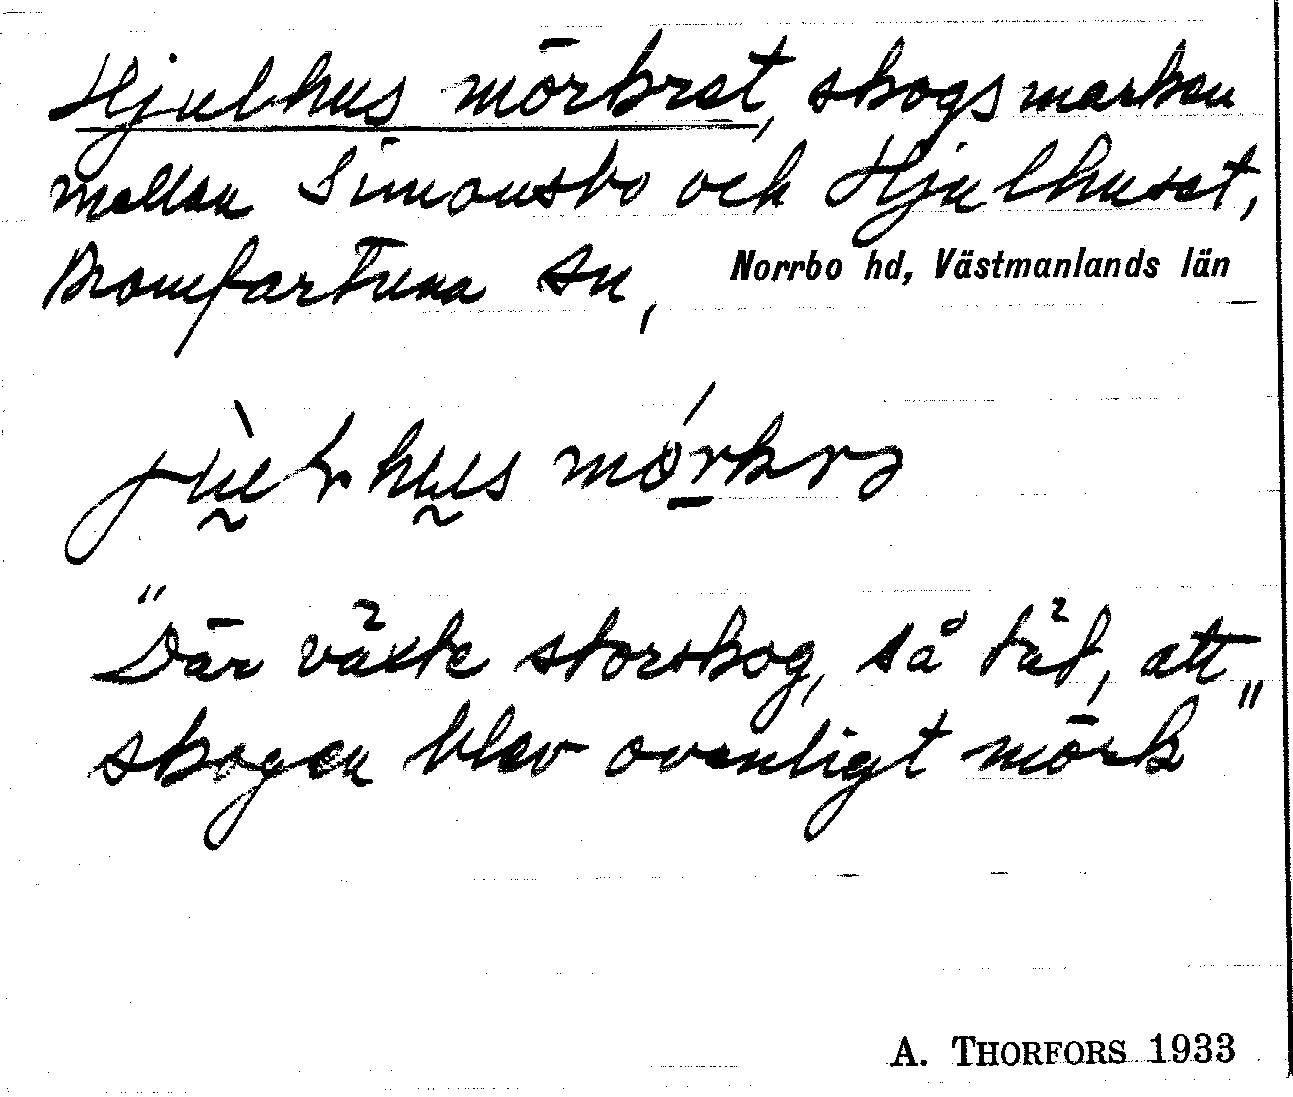 Hjulhus mörkret, skogsmarken
mellan Simonsbo och Hjulhuset,
Romfartuna sn, Norrbo hd, Västmanlands län
mörkrə
"Där växte storskog, så tät, att
skogen blev ovanligt mörk"
A. THORFORS 1933